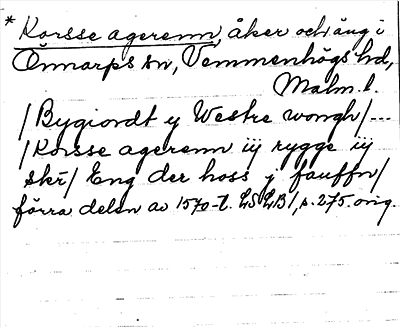 * Korsse agerenn, åker och äng i
Önnarps sn, Vemmenhögs hd,
Malm. l.
/Bygiordt y Westre wongh/---
/Korsse agerenn iij rygge iij
skr̄/ Eng der hoss j fauffn/
förra delen av 1570-t. LSLB 1, s. 275. orig.